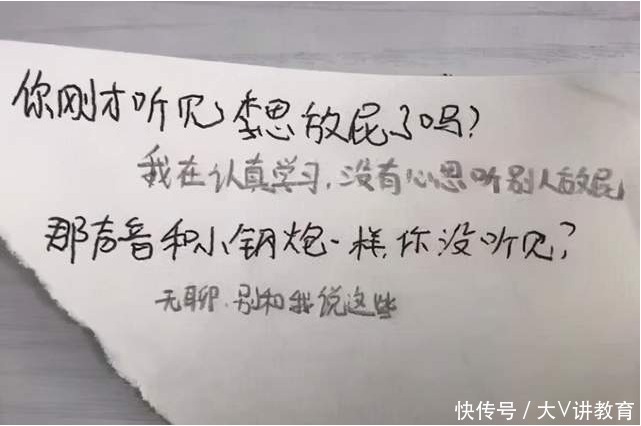 你刚才听见李思放屁了吗？
我在认真学习，没有心思听别人放屁
那声音和小钢炮一样，你没听见？
无聊，别和我说这些
快传号／大V讲教育